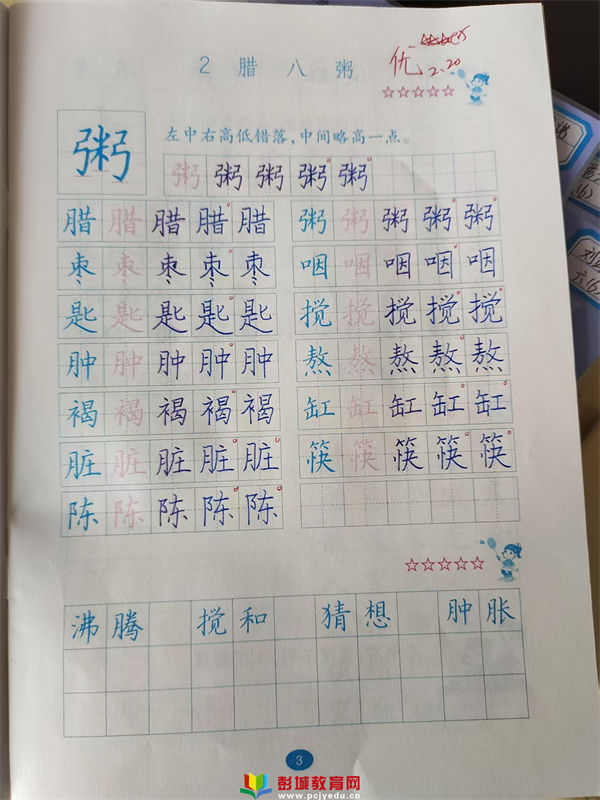 2 腊八粥
优
2.20
粥 左中右高低错落,中间略高一点。
粥 粥 粥 粥 粥
腊 腊 腊 腊 腊 粥 粥 粥 粥 粥
枣 枣 枣 枣 枣 咽 咽 咽 咽 咽
匙 匙 匙 匙 匙 搅 搅 搅 搅 搅
肿 肿 肿 肿 肿 熬 熬 熬 熬 熬
褐 褐 褐 褐 褐 缸 缸 缸 缸 缸
脏 脏 脏 脏 脏 筷 筷 筷 筷 筷
陈 陈 陈 陈 陈
沸腾 搅和 猜想 肿胀
3
彭城教育网
www.pcjyedu.cn